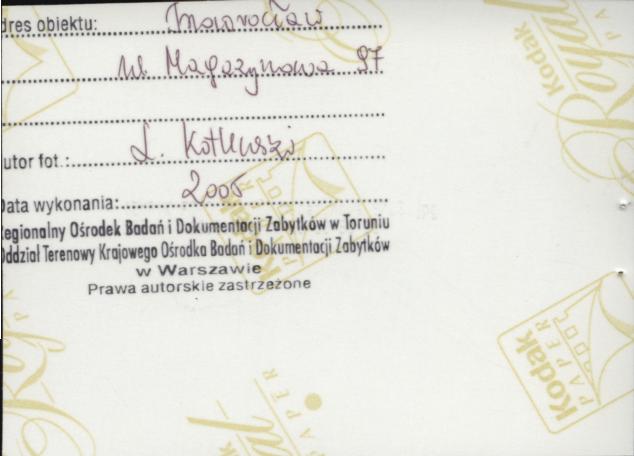 dres obiektu: Inowrocław
ul. Magazynowa 97
utor fot.: L. Kotlewski
Data wykonania: 2005
Regionalny Ośrodek Badań i Dokumentacji Zabytków w Toruniu
Oddział Terenowy Krajowego Ośrodka Badań i Dokumentacji Zabytków
w Warszawie
Prawa autorskie zastrzeżone
Kodak
PAPER
Royal
Kodak
PAPER
Kodak
PAPER
Royal
PAPER